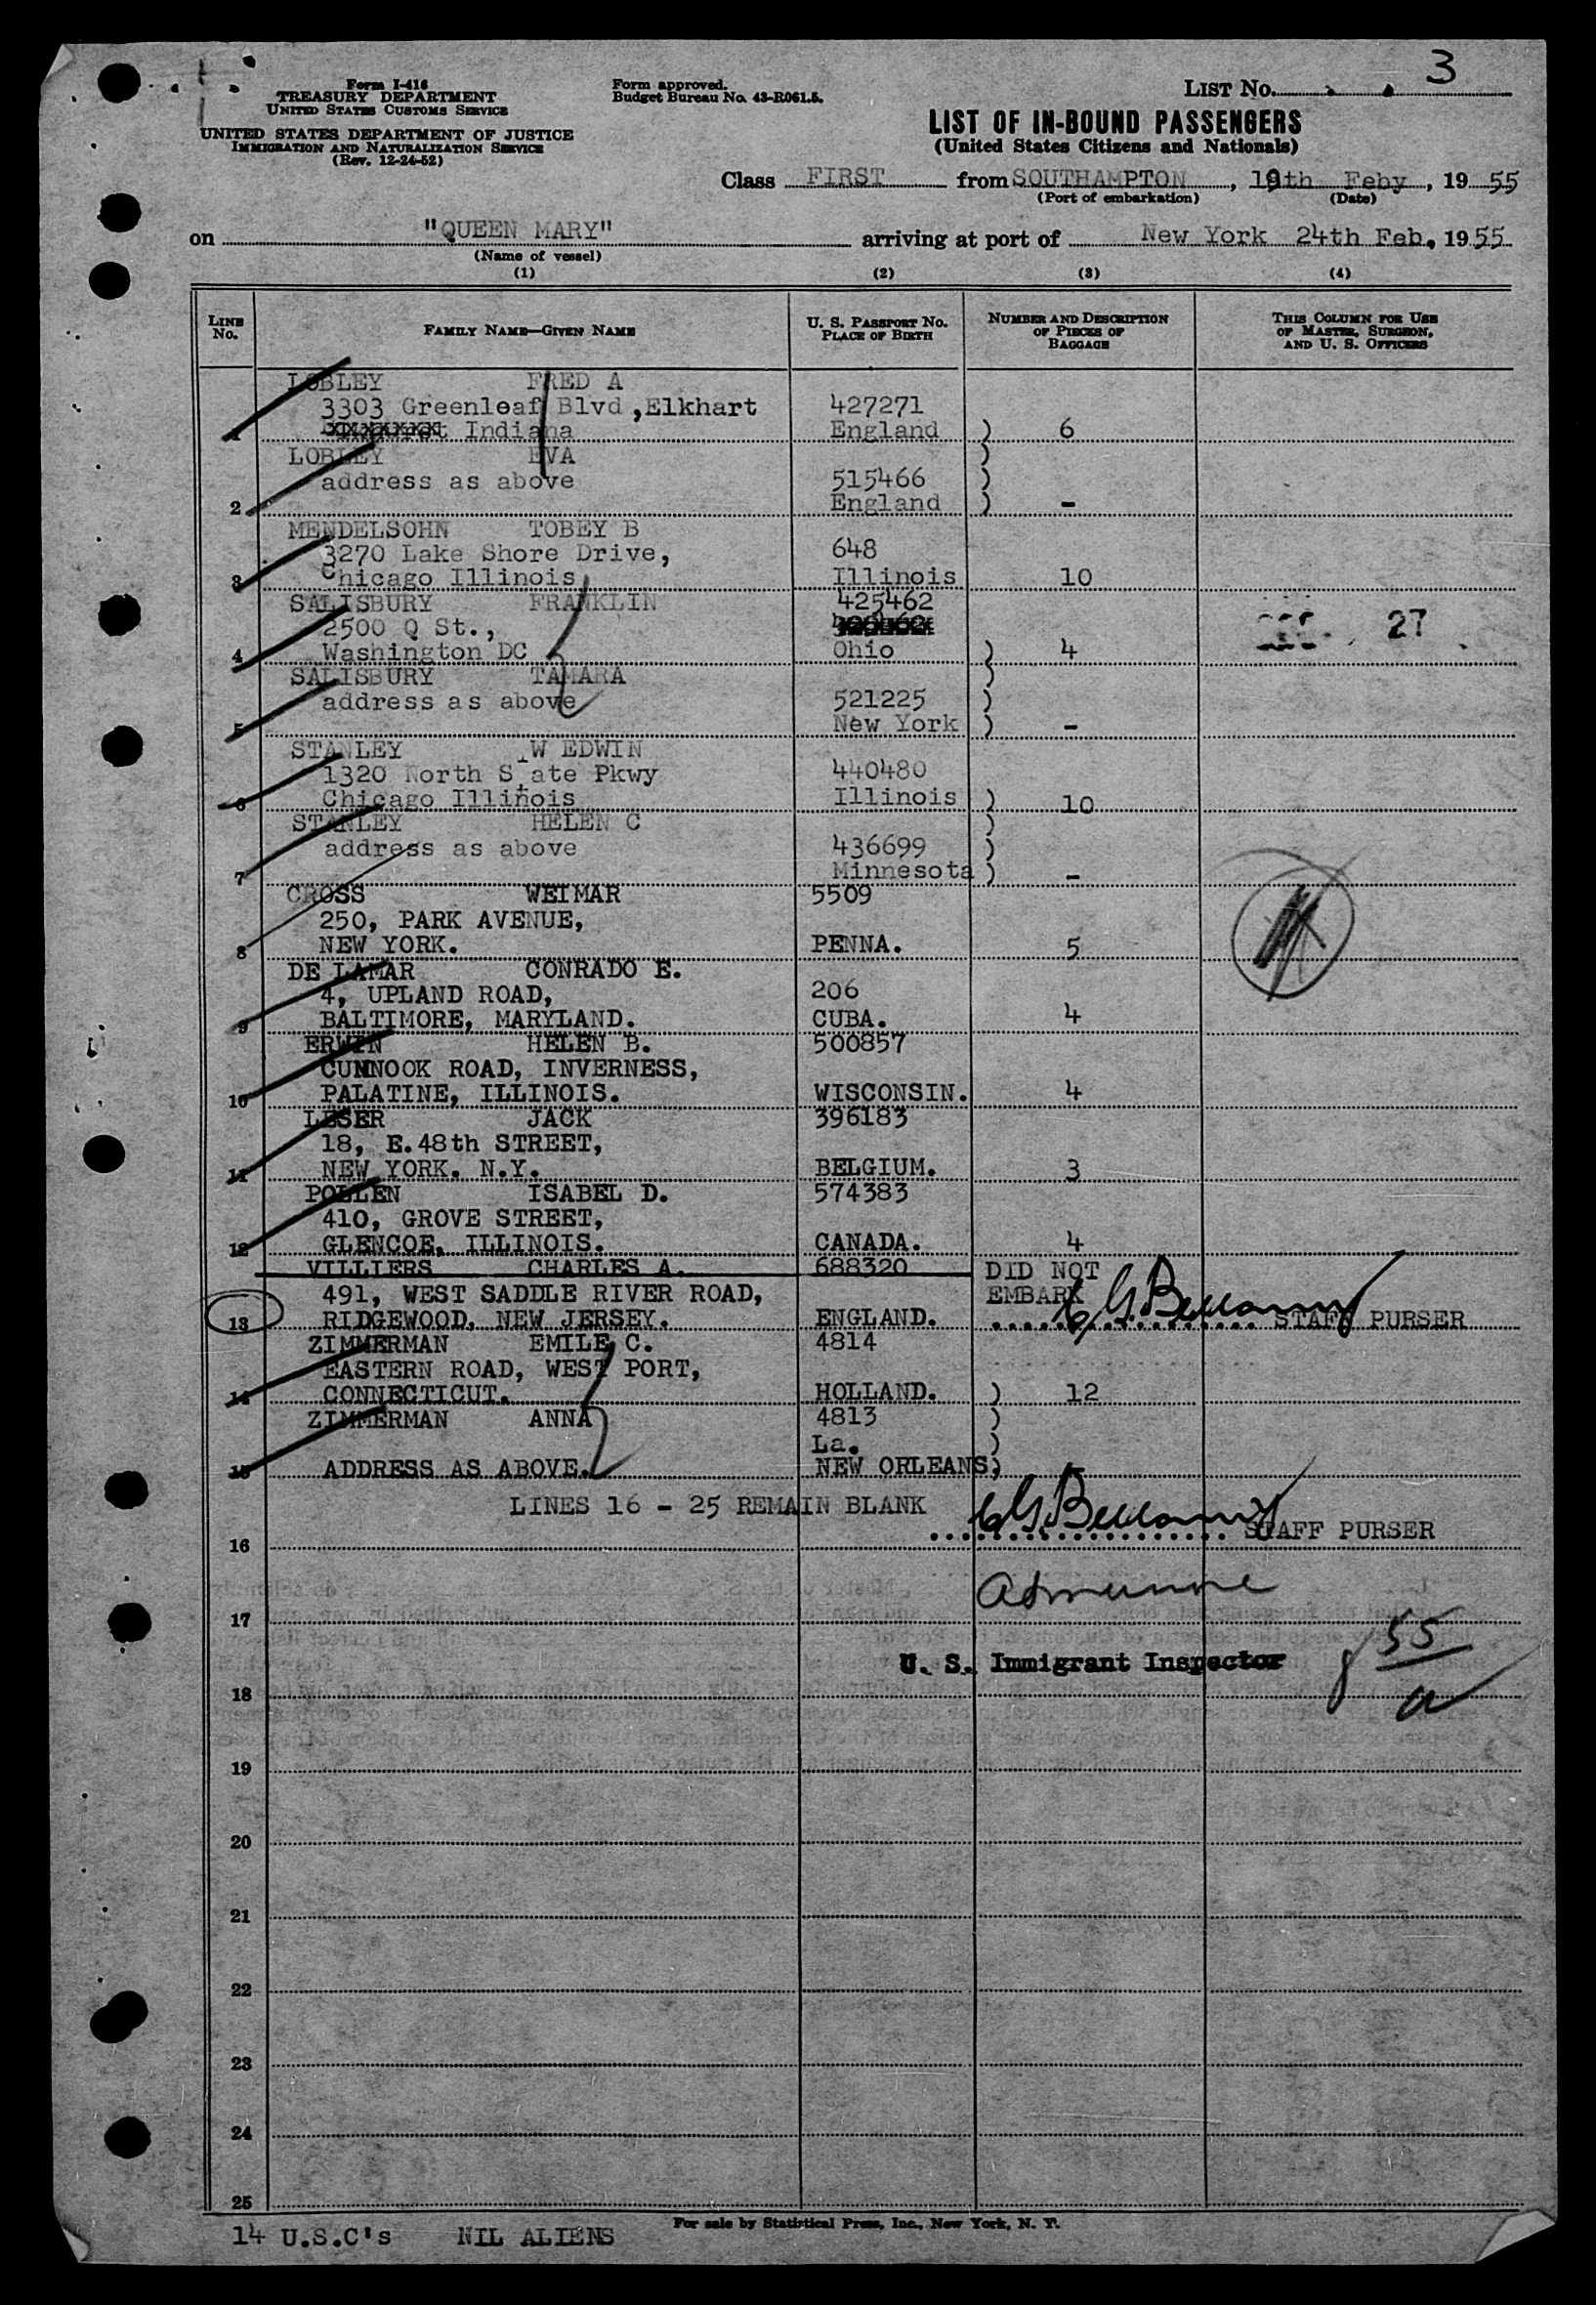 3
Form I-416
TREASURY DEPARTMENT
UNITED STATES CUSTOMS SERVICE
UNITED STATES DEPARTMENT OF JUSTICE
IMMIGRATION AND NATURALIZATION SERVICE
(Rev. 12-24-52)
Form approved.
Budget Bureau No. 43-R061.5.
LIST No.
LIST OF IN-BOUND PASSENGERS
(United States Citizens and Nationals)
Class FIRST from SOUTHAMPTON, 19th Feby, 19 55
(Port of embarkation) (Date)
on "QUEEN MARY" arriving at port of New York 24th Feb, 1955
(Name of vessel)
(1) (2) (3) (4)
LINE No. FAMILY NAME—GIVEN NAME U. S. PASSPORT No. PLACE OF BIRTH NUMBER AND DESCRIPTION OF PIECES OF BAGGAGE THIS COLUMN FOR USE OF MASTER, SURGEON, AND U. S. OFFICERS
LOBLEY FRED A
3303 Greenleaf Blvd ,Elkhart 427271
1 Indiana England ) 6
LOBLEY EVA )
address as above 515466 )
2 England ) -
MENDELSOHN TOBEY B
3270 Lake Shore Drive, 648
3 Chicago Illinois Illinois 10
SALISBURY FRANKLIN 425462
2500 Q St., 27
4 Washington DC Ohio ) 4
SALISBURY TAMARA )
address as above 521225 )
5 New York ) -
STANLEY W EDWIN
1320 North State Pkwy 440480
6 Chicago Illinois Illinois ) 10
STANLEY HELEN C )
address as above 436699 )
7 Minnesota ) -
CROSS WEIMAR 5509
250, PARK AVENUE,
8 NEW YORK. PENNA. 5
DE LAMAR CONRADO E.
4, UPLAND ROAD, 206
9 BALTIMORE, MARYLAND. CUBA. 4
ERWIN HELEN B. 500857
CUNNOOK ROAD, INVERNESS,
10 PALATINE, ILLINOIS. WISCONSIN. 4
LESER JACK 396183
18, E.48th STREET,
11 NEW YORK. N.Y. BELGIUM. 3
POLLEN ISABEL D. 574383
410, GROVE STREET,
12 GLENCOE, ILLINOIS. CANADA. 4
VILLIERS CHARLES A. 688320 DID NOT
491, WEST SADDLE RIVER ROAD, EMBARK
13 RIDGEWOOD, NEW JERSEY. ENGLAND. STAFF PURSER
ZIMMERMAN EMILE C. 4814
EASTERN ROAD, WEST PORT,
14 CONNECTICUT. HOLLAND. ) 12
ZIMMERMAN ANNA 4813 )
La. )
15 ADDRESS AS ABOVE. NEW ORLEANS) -
LINES 16 - 25 REMAIN BLANK
STAFF PURSER
16
17
55
U. S. Immigrant Inspector
18
19
20
21
22
23
24
25
For sale by Statistical Press, Inc., New York, N. Y.
14 U.S.C's NIL ALIENS